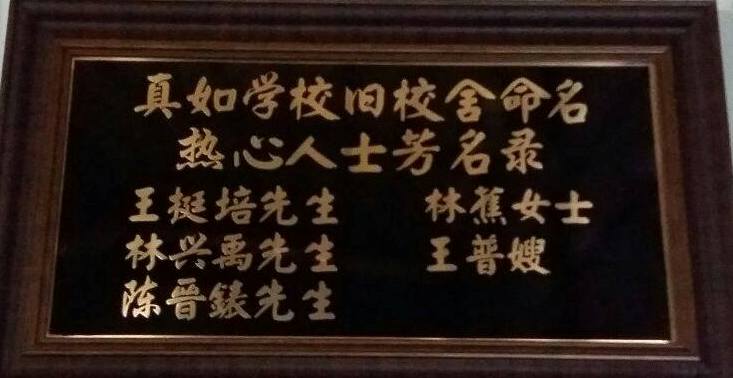 真如学校旧校舍命名
热心人士芳名录
王挺培先生 林蕉女士
林兴禹先生 王普嫂
陈晋錶先生